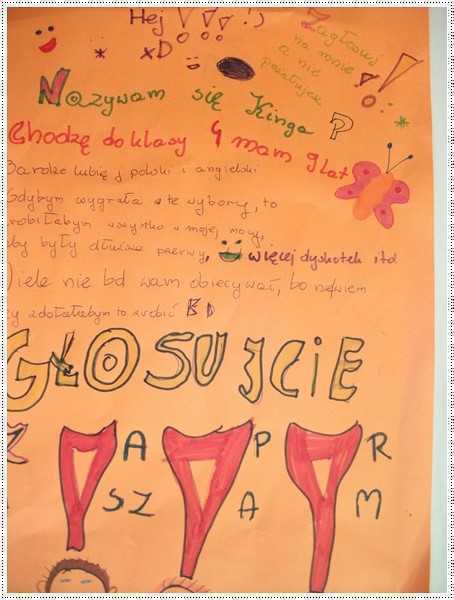 Hej !!! :)
xD
Zagłosuj
na mnie
a nie
pożałujesz !
Nazywam się Kinga P
Chodzę do klasy 4 mam 9 lat
Bardzo lubię j polski i angielski
Gdybym wygrała te wybory, to
zrobiłabym wszystko w mojej mocy,
by były dłuższe przerwy, więcej dyskotek itd
Wiele nie bd wam obiecywać, bo
zdołałabym to zrobić
GŁOSUJCIE
Z A P R
A SZ A M